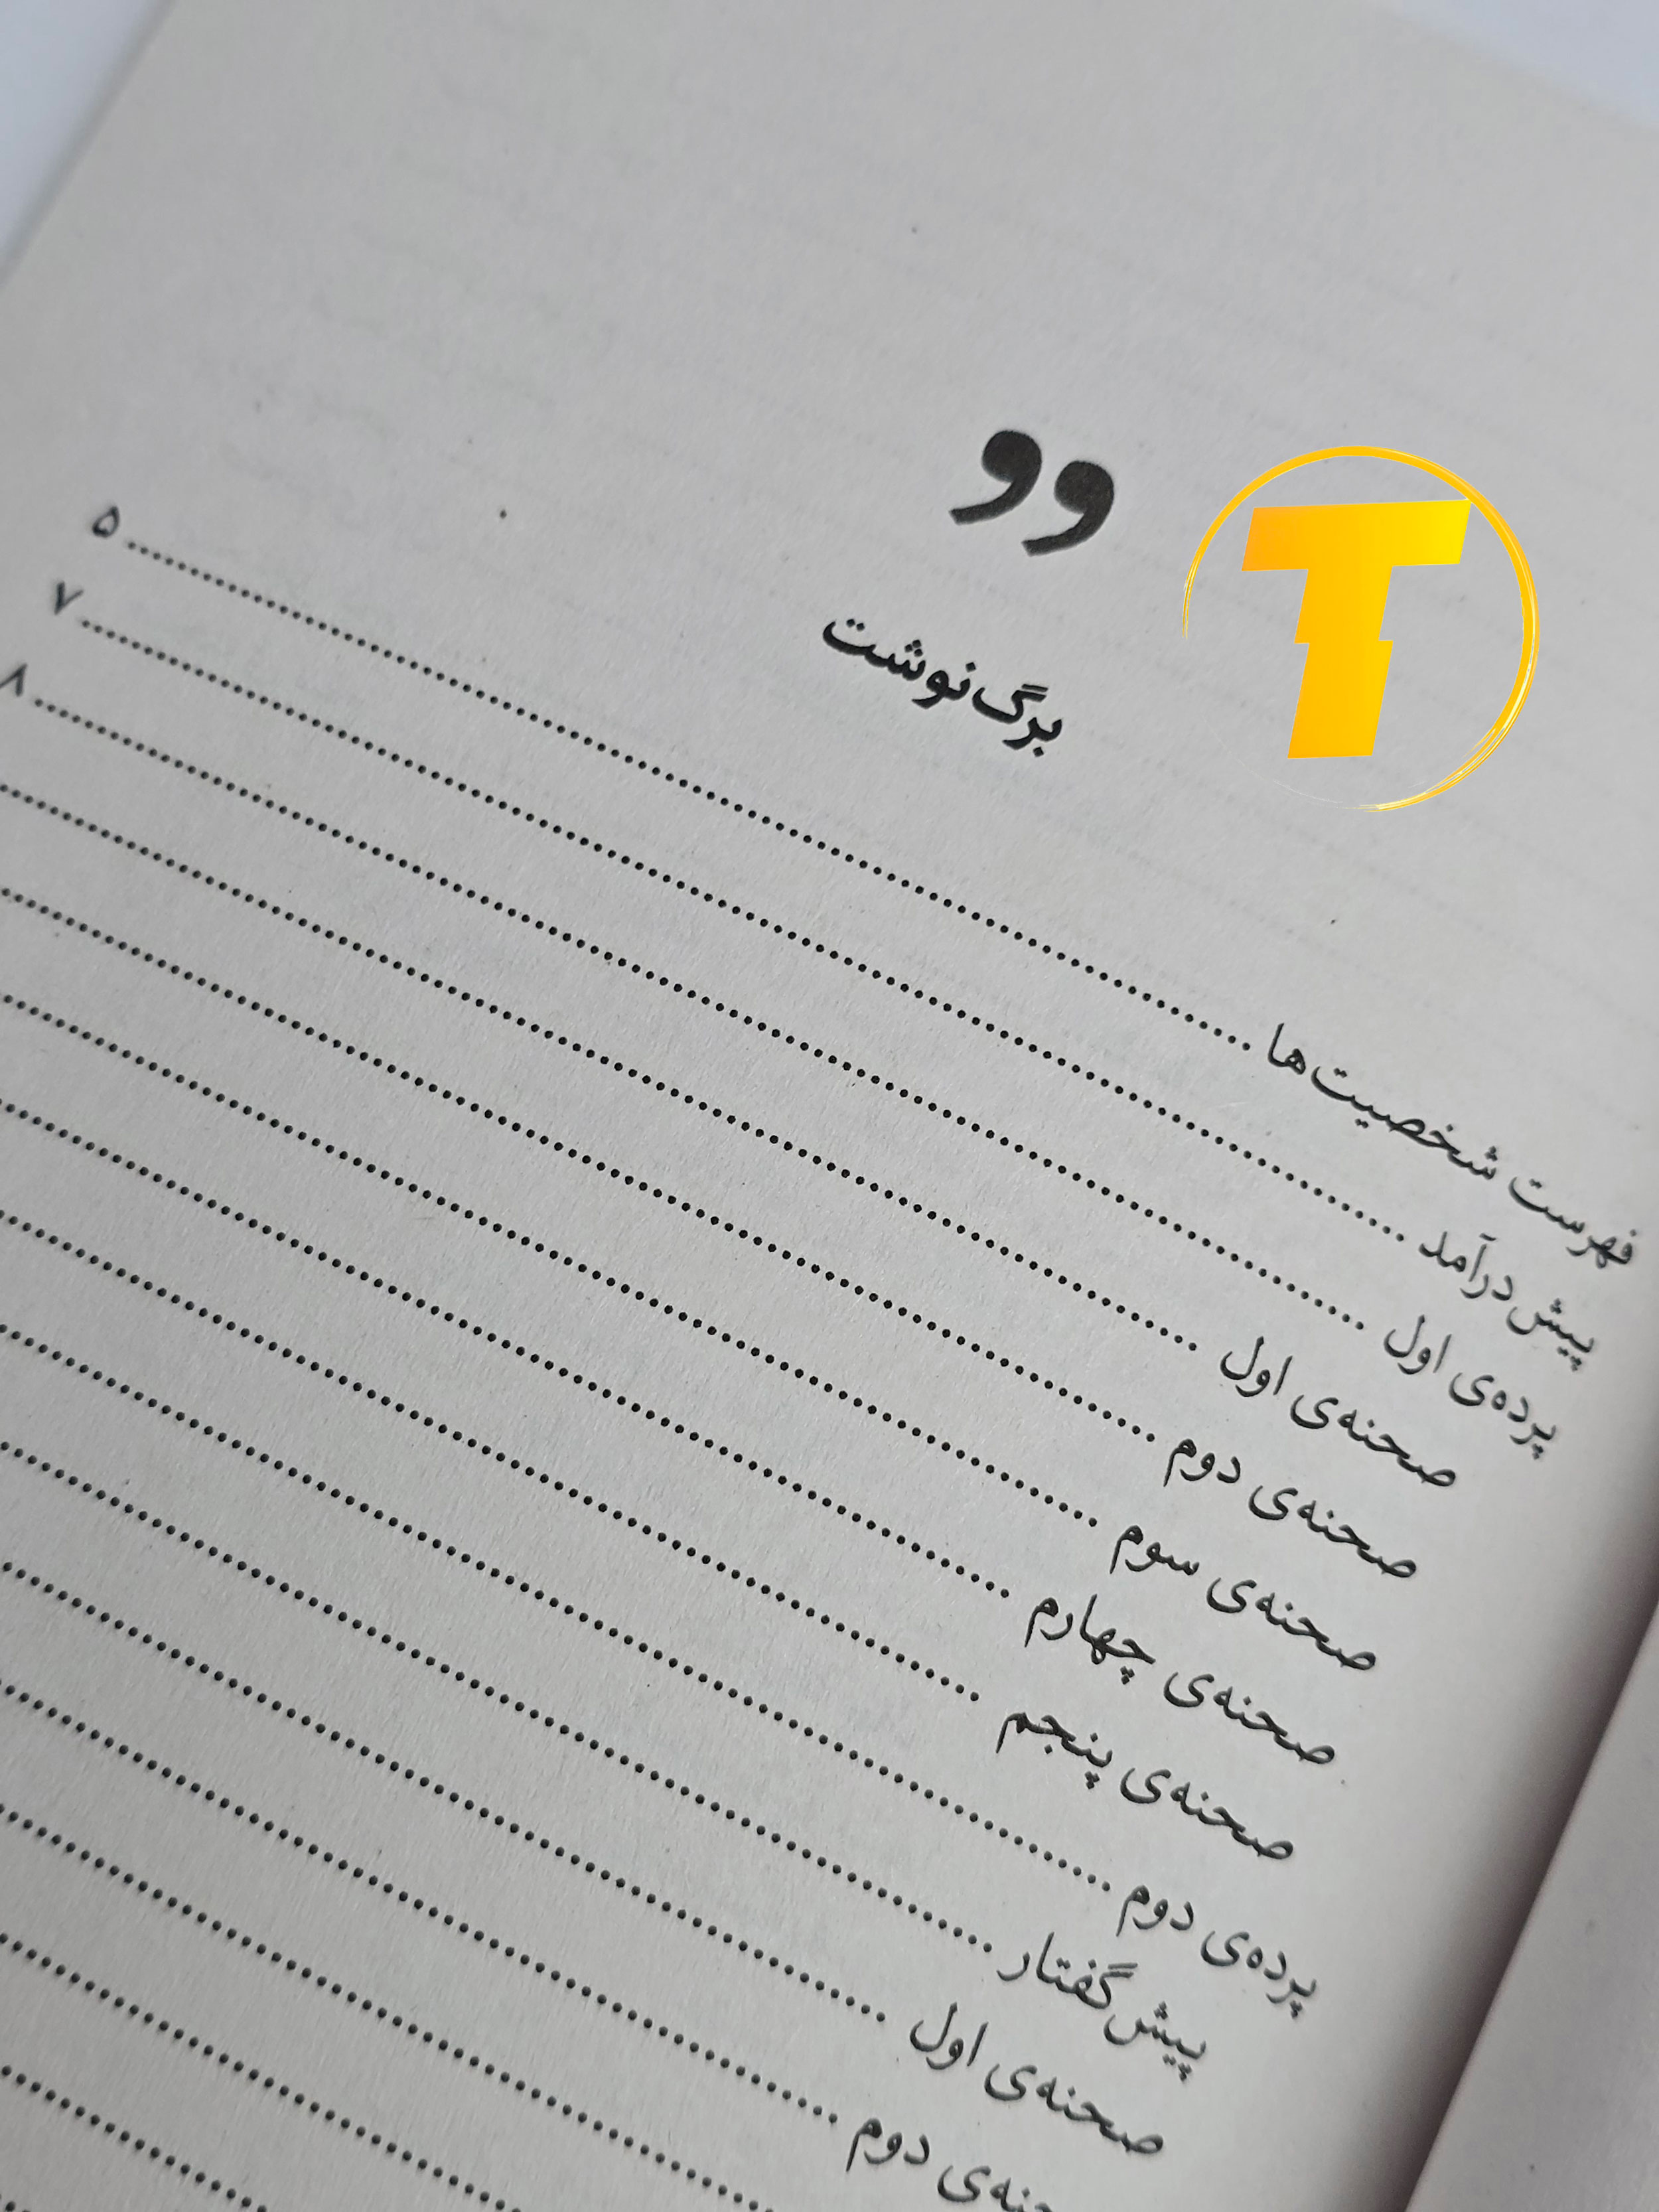 وو
T
برگ‌نوشت
فهرست شخصیت‌ها ........ ۵
پیش درآمد ........ ۷
پرده‌ی اول ........ ۸
صحنه‌ی اول ........
صحنه‌ی دوم ........
صحنه‌ی سوم ........
صحنه‌ی چهارم ........
صحنه‌ی پنجم ........
پرده‌ی دوم ........
پیش‌گفتار ........
صحنه‌ی اول ........
صحنه‌ی دوم ........